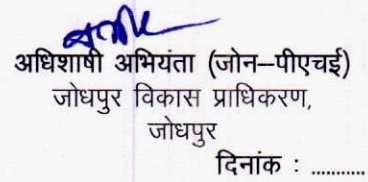 अधिशाषी अभियंता (जोन–पीएचई)
जोधपुर विकास प्राधिकरण,
जोधपुर
दिनांक : ...........